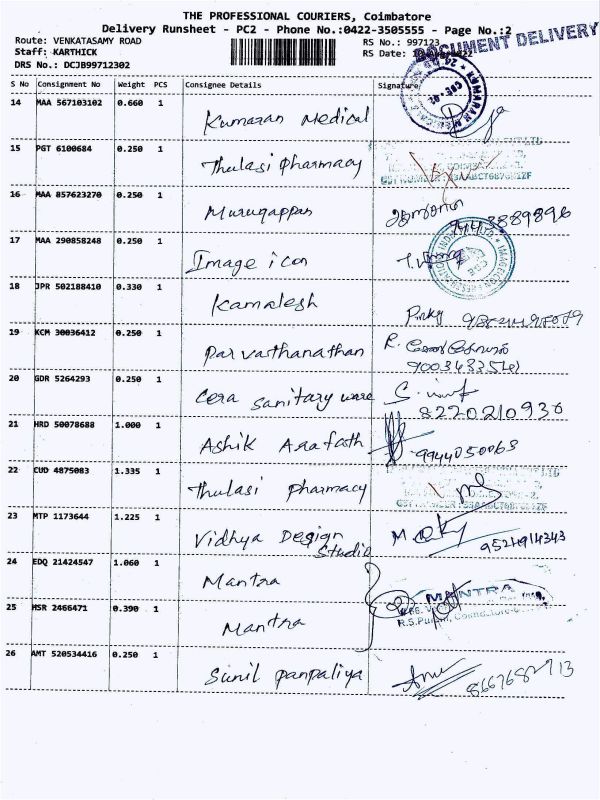 THE PROFESSIONAL COURIERS, Coimbatore
Delivery Runsheet - PC2 - Phone No.:0422-3505555 - Page No.:2
Route: VENKATASAMY ROAD RS No.: 997123
Staff: KARTHICK RS Date:
DOCUMENT DELIVERY
DRS No.: DCJB99712302
S No Consignment No Weight PCS Consignee Details Signature
14 MAA 567103102 0.660 1 Kumaran Medical
15 PGT 6100684 0.250 1 Thulasi pharmacy
16 MAA 857623270 0.250 1 Murugappan
17 MAA 290858248 0.250 1 Image icon
18 JPR 502188410 0.330 1 Kamalesh Pinky
19 KCM 30036412 0.250 1 Parvarthanathan R.
20 GDR 5264293 0.250 1 Cera Sanitary ware S.
8220210936
21 HRD 50078688 1.000 1 Ashik Arafath 9944050063
22 CUD 4875083 1.335 1 Thulasi pharmacy
23 MTP 1173644 1.225 1 Vidhya Design
Studio
24 EDQ 21424547 1.060 1 Mantra
MANTRA
25 HSR 2466471 0.390 1 Mantra
26 AMT 520534416 0.250 1 Sunil panpaliya